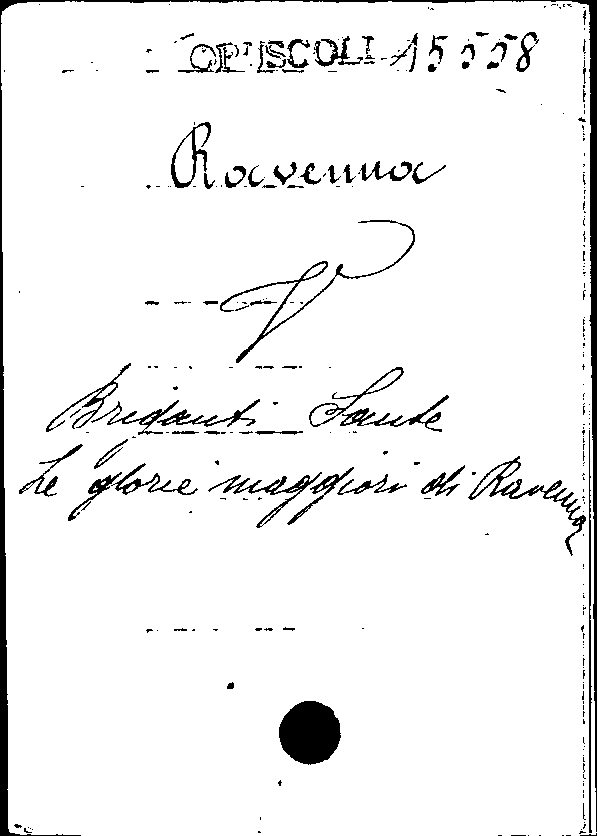 OPUSCOLI 15558
Ravenna
V
Briganti Sante
Le glorie maggiori di Ravenna